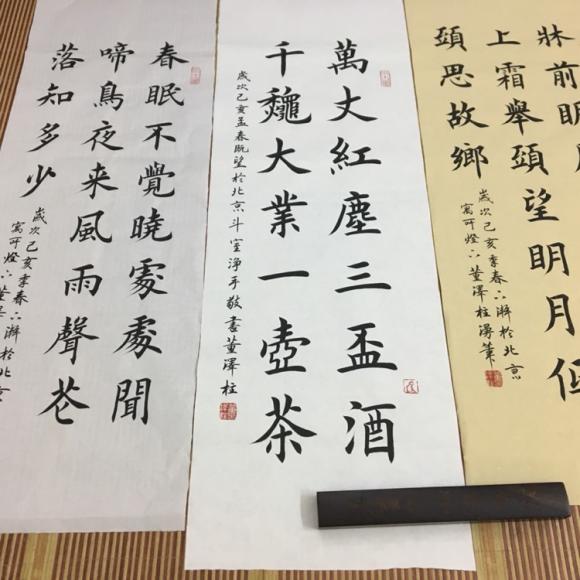 牀前明月
上霜舉頭望明月低
頭思故鄉
歲次己亥季春下澣於北京
寓所燈下董澤柱漫筆
萬丈紅塵三盃酒
千龝大業一壺茶
歲次己亥孟春既望於北京斗室淨手敬書董澤柱
春眠不覺曉處處聞
啼鳥夜来風雨聲花
落知多少
歲次己亥季春下澣於北京
寓所燈下董